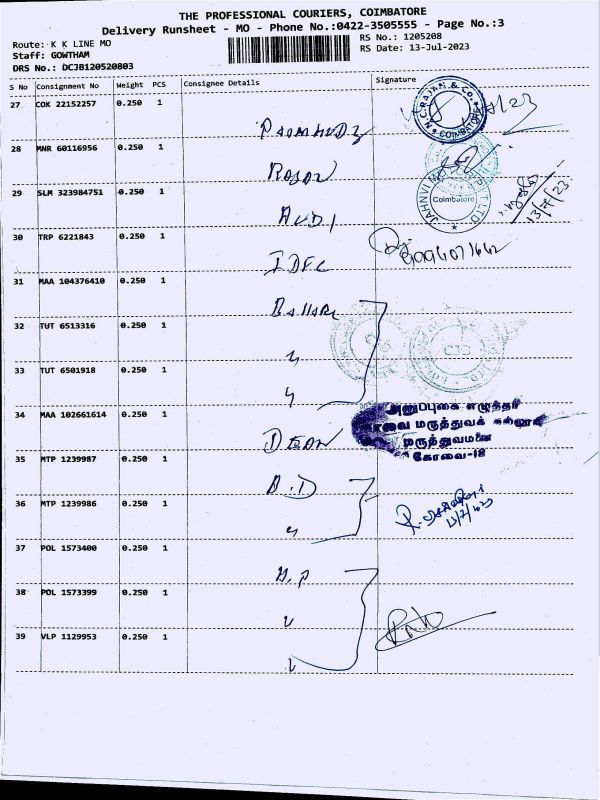 THE PROFESSIONAL COURIERS, COIMBATORE
Delivery Runsheet - MO - Phone No.:0422-3505555 - Page No.:3
Route: K K LINE MO
RS No.: 1205208
Staff: GOWTHAM
RS Date: 13-Jul-2023
DRS No.: DCJB120520803
S No Consignment No Weight PCS Consignee Details Signature
27 COK 22152257 0.250 1
N.C.RAJAN & Co. COIMBATORE
28 MNR 60116956 0.250 1
29 SLM 323984751 0.250 1
Coimbatore
13/7/23
AUDI
30 TRP 6221843 0.250 1
IDFC
31 MAA 104376410 0.250 1
32 TUT 6513316 0.250 1
33 TUT 6501918 0.250 1
CJB
34 MAA 102661614 0.250 1
DEAN
அனுப்புகை எழுத்தர்
மருத்துவக்
மருத்துவமனை
கோவை-18
35 MTP 1239987 0.250 1
B.D
36 MTP 1239986 0.250 1
13/7/23
37 POL 1573400 0.250 1
38 POL 1573399 0.250 1
39 VLP 1129953 0.250 1